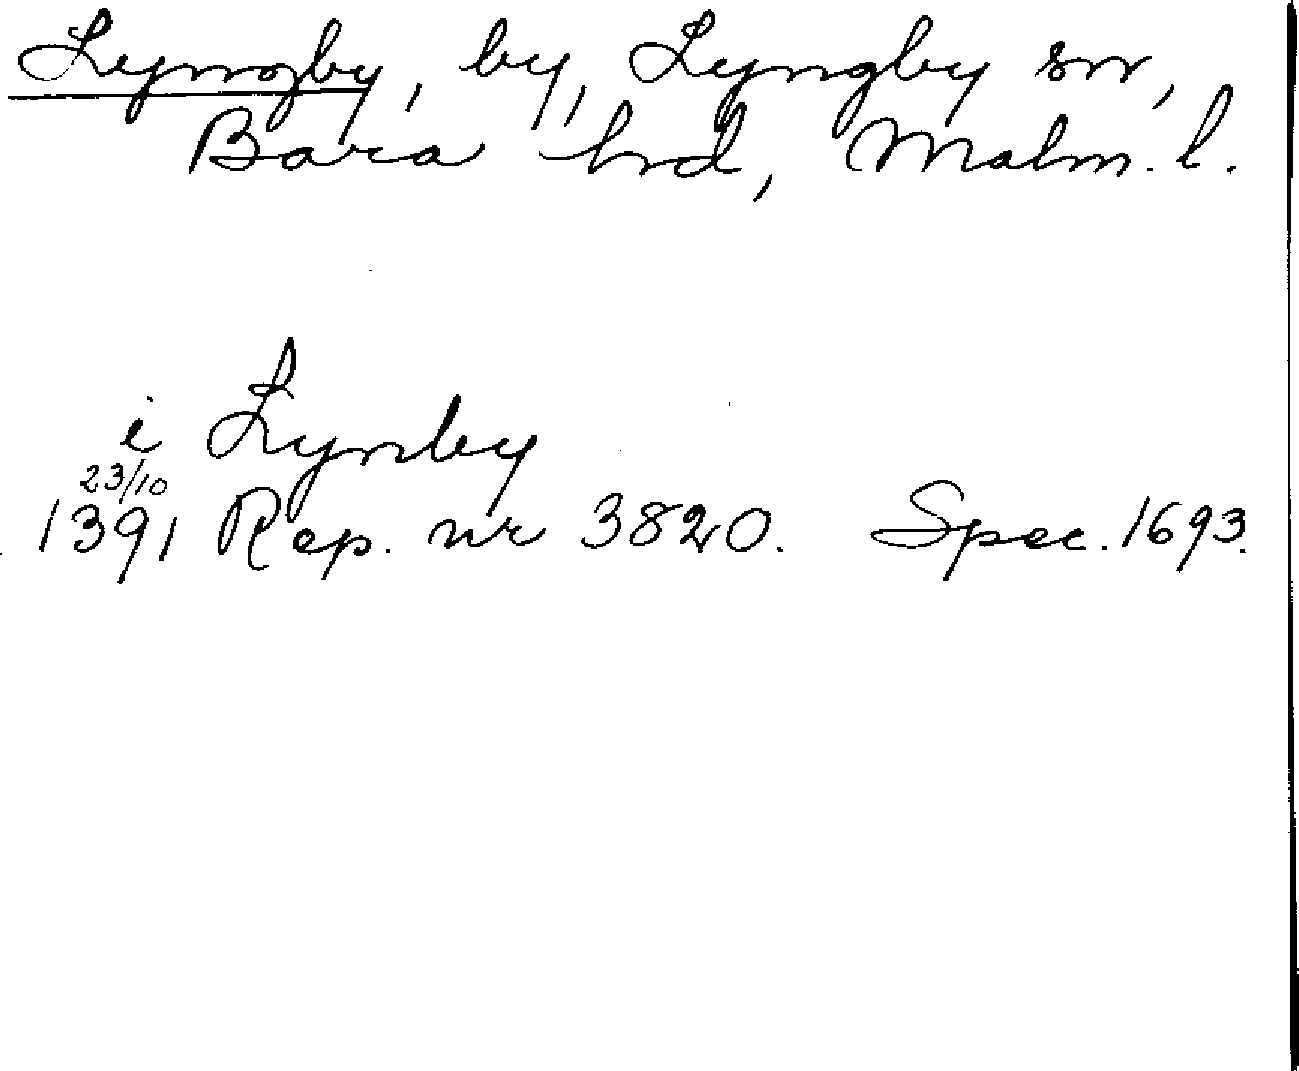 Lyngby, by, Lyngby sn,
Bara hrd, Malm. l.
i Lynby
23/10
1391 Rep. nr 3820. Spec. 1693.